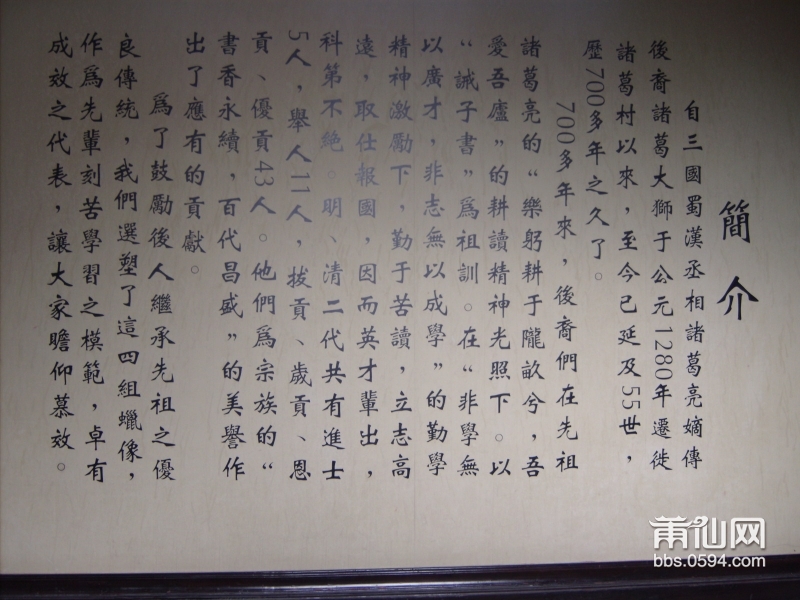 簡介
自三國蜀漢丞相諸葛亮嫡傳
後裔諸葛大獅于公元1280年遷徙
諸葛村以來，至今已延及55世，
歷700多年之久了。
700多年來，後裔們在先祖
諸葛亮的“樂躬耕于隴畝兮，吾
愛吾廬”的耕讀精神光照下。以
“誡子書”爲祖訓。在“非學無
以廣才，非志無以成學”的勤學
精神激勵下，勤于苦讀，立志高
遠，取仕報國，因而英才輩出，
科第不絶。明、清二代共有進士
5人，舉人11人，拔貢、歲貢、恩
貢、優貢43人。他們爲宗族的“
書香永續，百代昌盛”的美譽作
出了應有的貢獻。
爲了鼓勵後人繼承先祖之優
良傳統，我們選塑了這四組蠟像，
作爲先輩刻苦學習之模範，卓有
成效之代表，讓大家瞻仰慕效。
莆仙网
bbs.0594.com